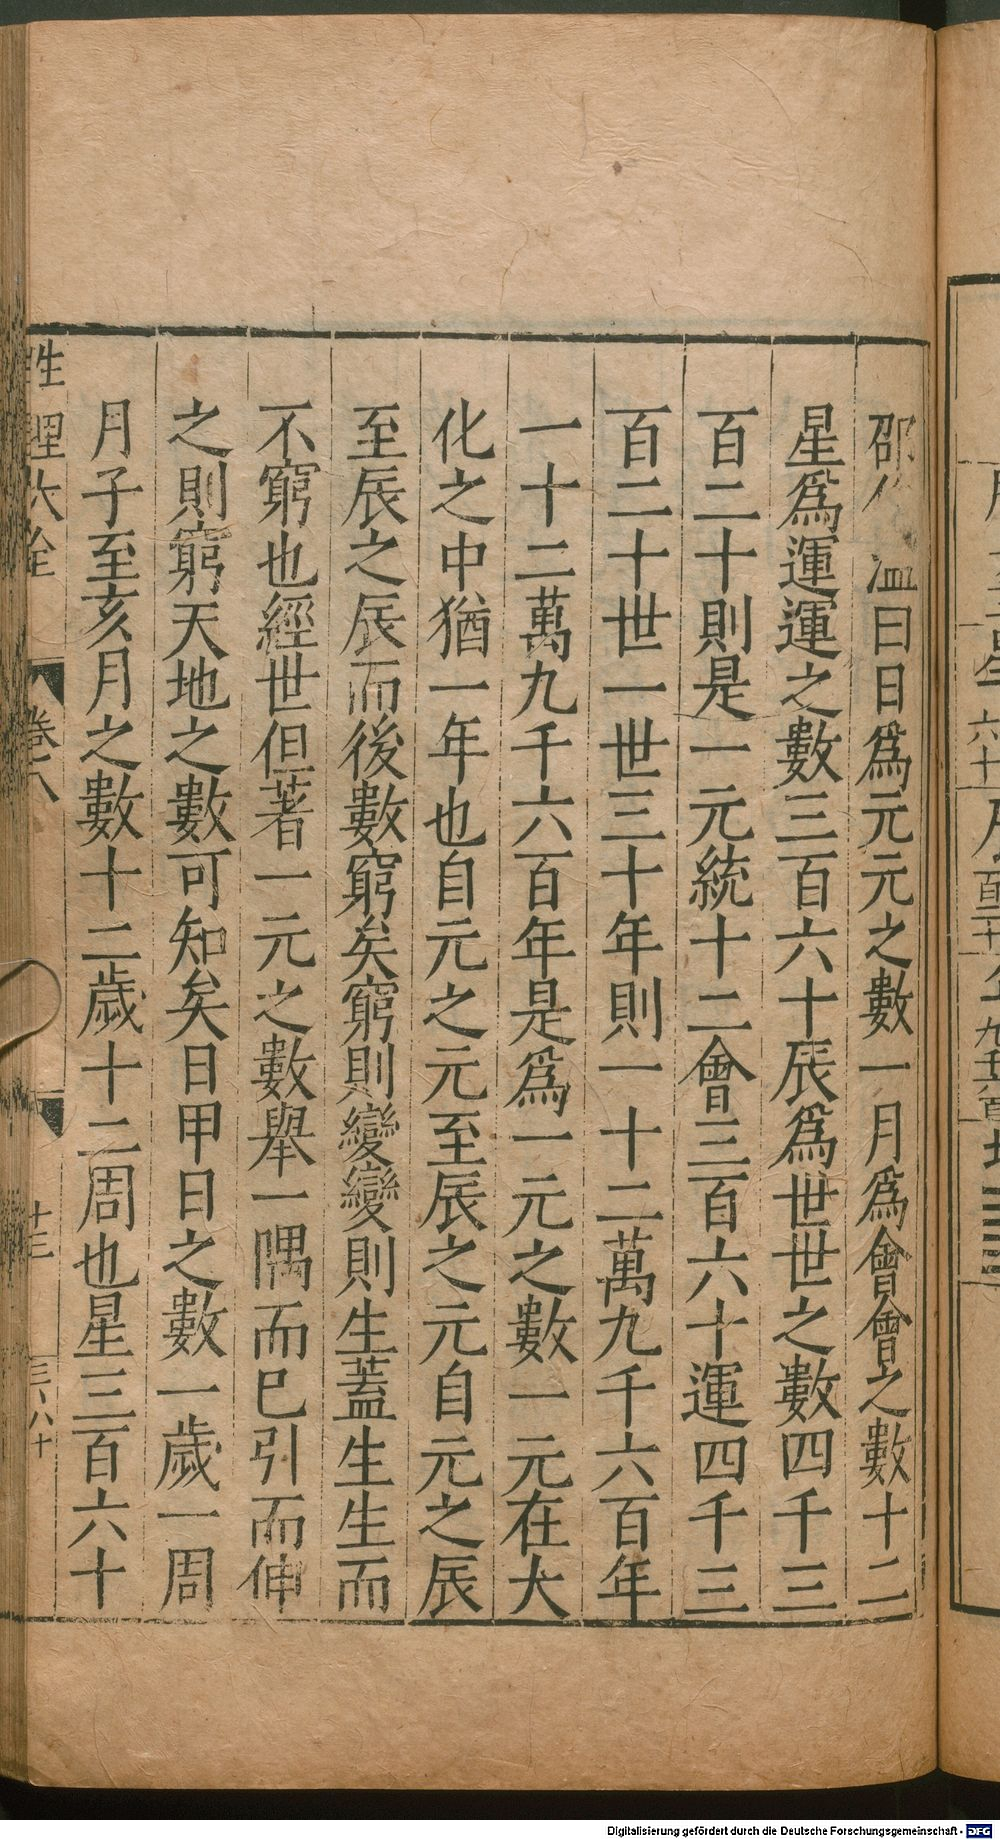 邵伯溫曰日爲元元之數一月爲會會之數十二
星爲運運之數三百六十辰爲世世之數四千三
百二十則是一元統十二會三百六十運四千三
百二十世一世三十年則一十二萬九千六百年
一十二萬九千六百年是爲一元之數一元在大
化之中猶一年也自元之元至辰之元自元之辰
至辰之辰而後數窮矣窮則變變則生蓋生生而
不窮也經世但著一元之數舉一隅而已引而伸
之則窮天地之數可知矣日甲日之數一歲一周
月子至亥月之數十二歲十二周也星三百六十
性理大全 卷八 十三
Digitalisierung gefördert durch die Deutsche Forschungsgemeinschaft - DFG